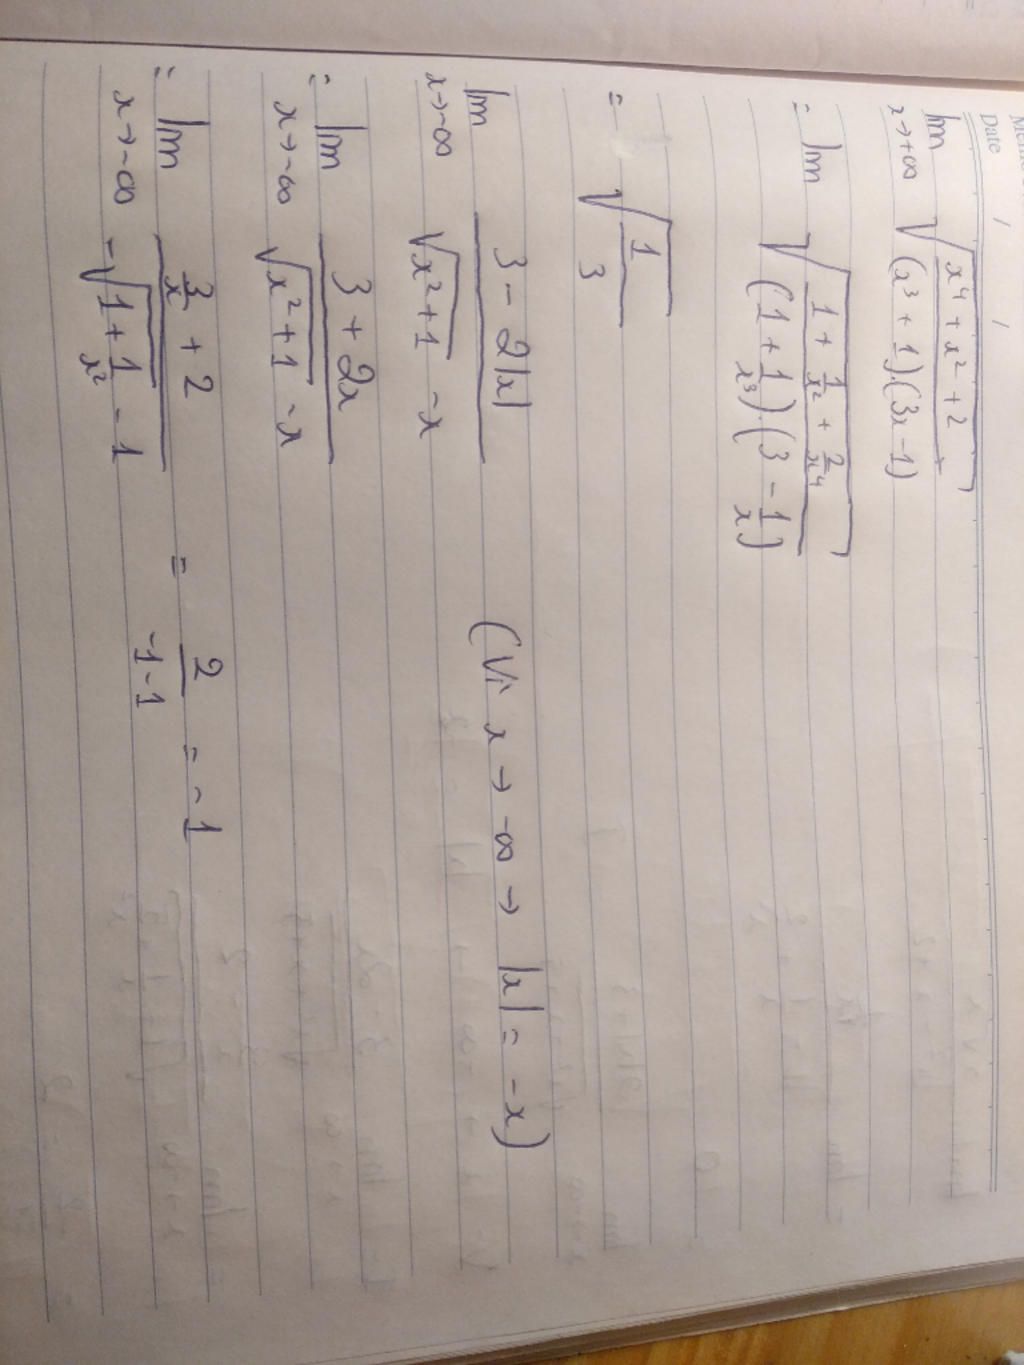 Date / /
lim x→+∞ √((x⁴ + x² + 2)/((x³ + 1).(3x - 1)))
= lim √((1 + 1/x² + 2/x⁴)/((1 + 1/x³).(3 - 1/x)))
= √(1/3)
lim x→-∞ (3 - 2|x|)/(√(x² + 1) - x) (Vì x → -∞ → |x| = -x)
= lim x→-∞ (3 + 2x)/(√(x² + 1) - x)
= lim x→-∞ (3/x + 2)/(-√(1 + 1/x²) - 1) = 2/(-1 - 1) = -1